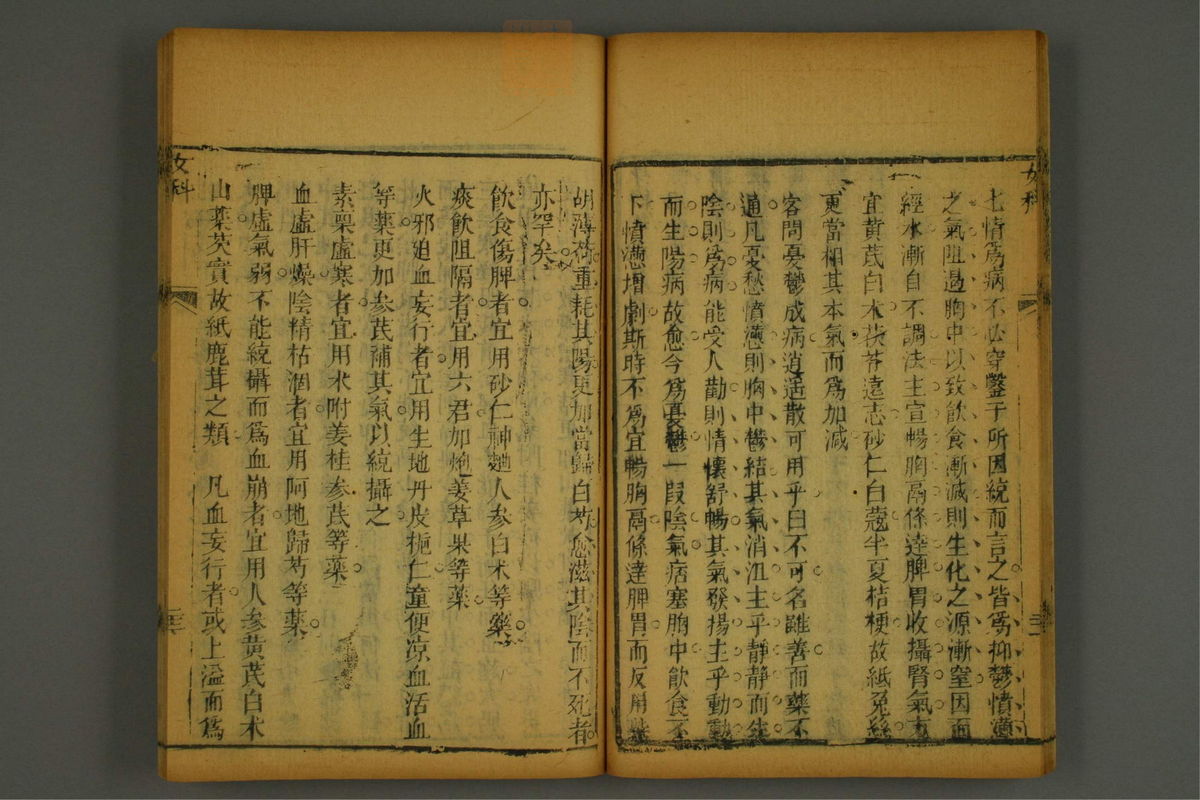 七情爲病不必穿鑿子所因統而言之皆爲抑鬱憤懣
之氣阻遏胸中以致飲食漸減則生化之源漸窒因而
經水漸自不調法主宣暢胸膈條達脾胃收攝腎氣方
宜黃芪白术茯苓遠志砂仁白蔻半夏桔梗故紙兔絲
更當相其本氣而爲加減
客問憂鬱成病逍遥散可用乎曰不可名雖善而藥不
通凡憂愁憤懣則胸中鬱結其氣消沮主乎靜靜而生
陰則爲病能受人勸則情懷舒暢其氣發揚主乎動動
而生陽病故愈今爲憂鬱一叚陰氣痞塞胸中飲食不
下憤懣增劇斯時不爲宜暢胸膈條達脾胃而反用柴
女科
胡薄荷重耗其陽更加當歸白芍愈滋其陰而不死者
亦罕矣
飲食傷脾者宜用砂仁神麯人参白术等藥
痰飲阻隔者宜用六君加炮姜草果等藥
火邪廹血妄行者宜用生地丹皮梔仁童便凉血活血
等藥更加参芪補其氣以統攝之
素禀虛寒者宜用术附姜桂参芪等藥
血虛肝燥陰精枯涸者宜用阿地歸芍等藥
脾虛氣弱不能統攝而爲血崩者宜用人参黃芪白术
山藥芡實故紙鹿茸之類　凡血妄行者或上溢而爲
女科